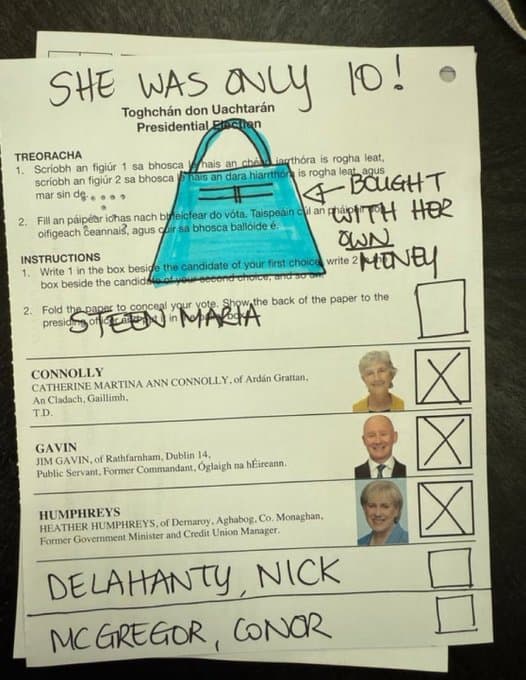 SHE WAS ONLY 10!
Toghchán don Uachtarán
Presidential Election
TREORACHA
1. Scríobh an figiúr 1 sa bhosca le hais an chéad iarrthóra is rogha leat,
scríobh an figiúr 2 sa bhosca le hais an dara hiarrthóra is rogha leat, agus
mar sin de.
BOUGHT
WITH HER
OWN
MONEY
2. Fill an páipéar ionas nach bhfeicfear do vóta. Taispeáin cúl an pháipéir
oifigeach ceannais, agus cuir sa bhosca ballóide é.
INSTRUCTIONS
1. Write 1 in the box beside the candidate of your first choice, write 2
box beside the candidate of your second choice, and so on.
2. Fold the paper to conceal your vote. Show the back of the paper to the
presiding officer and put it in the box.
STEEN MARIA
CONNOLLY
CATHERINE MARTINA ANN CONNOLLY, of Ardán Grattan,
An Cladach, Gaillimh,
T.D.
X
GAVIN
JIM GAVIN, of Rathfarnham, Dublin 14,
Public Servant, Former Commandant, Óglaigh na hÉireann.
X
HUMPHREYS
HEATHER HUMPHREYS, of Dernaroy, Aghabog, Co. Monaghan,
Former Government Minister and Credit Union Manager.
X
DELAHANTY, NICK
MCGREGOR, CONOR